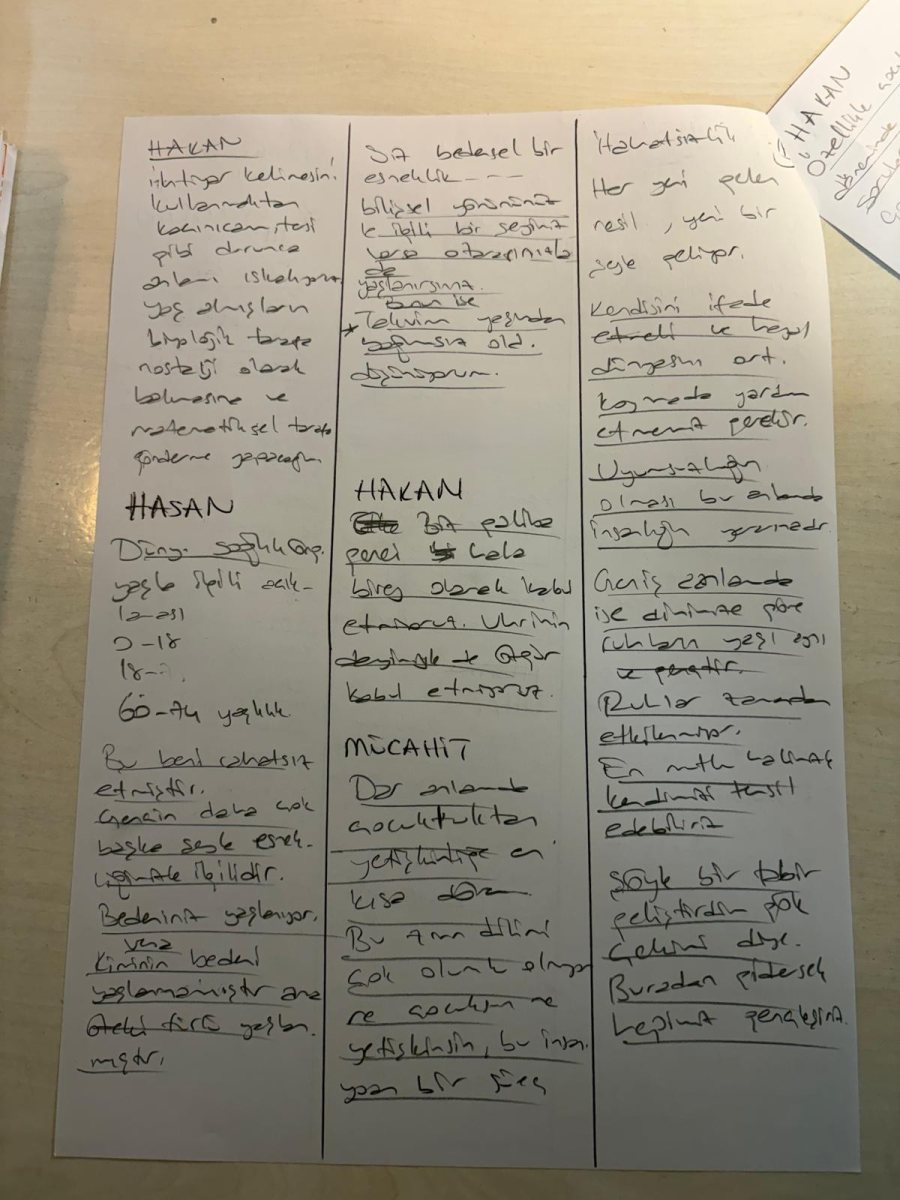 HAKAN
ihtiyar kelimesini
kullanmaktan
gibi durunca
anlam
yaş almışların
biyolojik tarafa
nostalji olarak
bakmasına ve
matematiksel tarafa
gönderme yapacağım
HASAN
Dünya sağlık örg.
yaşla ilgili açık-
laması
0-18
18-
60- yaşlılık.
Bu beni rahatsız
etmiştir.
Gencin daha çok
başka şeyle esnek-
liğimizle ilgilidir.
Bedenimiz yaşlanıyor.
veya
Kiminin bedeni
yaşlanmamıştır ama
öteki türlü yaşlan.
mıştır.
Siz bedensel bir
esneklik ---
bilişsel yönünüz
le ilgili bir şeyiniz
varsa
de
yaşlanırsınız.
ben ise
* Takvim yaşından
bağımsız old.
düşünüyorum.
HAKAN
Biz galiba
genci hala
birey olarak kabul
etmiyoruz.
deyimiyle de
kabul etmiyoruz.
MÜCAHİT
Dar anlamda
çocukluktan
yetişkinliğe en
kısa dönem
Bu zaman dilimi
çok olumlu olmuyor
ne çocuksun ne
yetişkinsin, bu insanı
yoran bir süreç
Rahatsızlık
Her yeni gelen
nesil, yeni bir
şeyle geliyor.
Kendisini ifade
etmeli ve hayal
dünyasını ort.
koymada yardım
etmemiz gerekir.
Uyumsuzluğun
olması bu anlamda
insanlığın yararınadır.
Geniş anlamda
ise dinimize göre
ruhların yaşı aynı
ve gençtir.
Ruhlar zamandan
etkilenmiyor.
En mutlu halimizle
kendimizi
edebiliriz
Şöyle bir tabir
geliştirdim gök
çekimi diye.
Buradan gidersek
hepimiz gençleşiriz.
HAKAN
Özellikle
döneminde